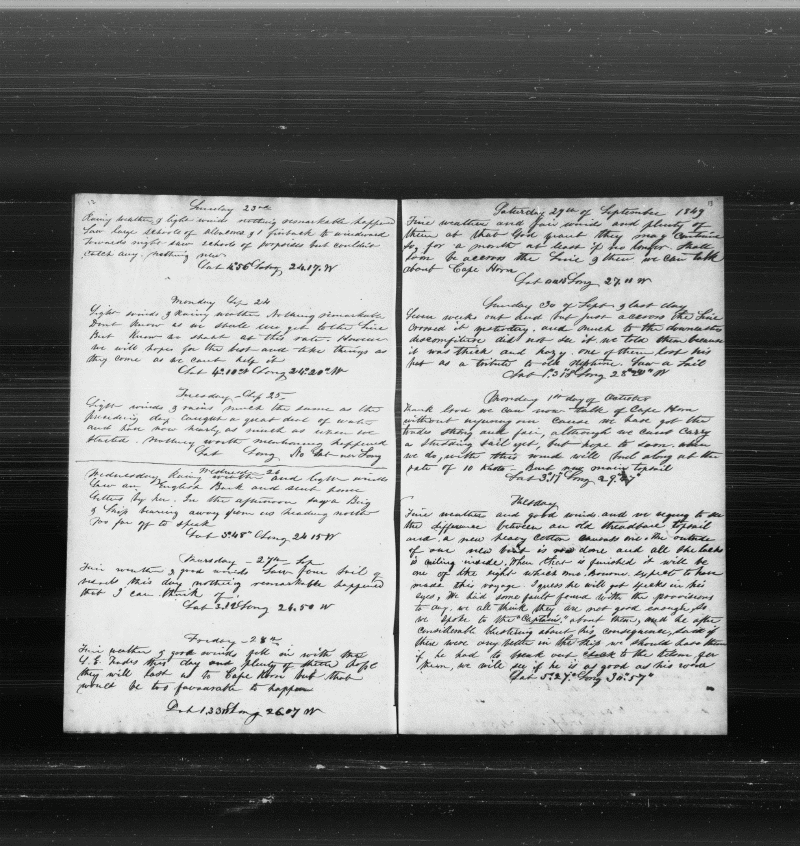 Sunday 23rd
Rainy weather & light winds nothing remarkable happened
Saw large schools of & 1 finback to windward
Towards night saw schools of porpoises but couldn't
catch any. nothing new
Lat 4°56 Long 24.17. W
Monday Sep 24
Light winds & Rainy weather Nothing remarkable
Dont know as we shall ever get to the Line
But know we shant at this rate. However
we will hope for the best and take things as
they come as we cant help it
Lat 4°.10 Long 24°.20" W
Tuesday - Sep 25
Light winds & rains much the same as the
preceding day caught a great deal of water
and have now nearly as much as when we
started. Nothing worth mentioning happened
Lat Long, No Lat - no Long
Wednesday 26
Wednesday Rainy weather and light winds
Saw an English Bark and sent home
letters by her. In the afternoon saw a Brig
& Ship bearing away from us heading north
Too far off to speak
Lat 3°.48" Long 24 15 W
Thursday - 27th Sep
Fine weather & good winds Saw four sail of
vessels this day nothing remarkable happened
that I can think of
Lat 3.12 Long 26.50 W
Friday - 28th
Fine weather & good winds fell in with the
S.E. Trades this day and plenty of them hope
they will last us to Cape Horn but that
would be too favourable to happen
Lat 1.33 Long 26.07 W
13
Saturday 29th of September 1849
Fine weather and fair winds and plenty of
them at that God grant they may continue
so, for a month at least if no longer Shall
soon be accross the Line & then we can talk
about Cape Horn
Lat Long 27.11 W
Sunday 30 of Sept & last day
Seven weeks out and but just accross the Line
Crossed it yesterday, and much to the
discomfiture did not see it we told them because
it was thick and hazy. one of them lost his
hat as a tribute to old Neptune. Saw a Sail
Lat 1.31 Long 28°20" W
Monday 1st day of October
Thank God we can now talk of Cape Horn
without injuring our cause We have got the
trades strong and fair, although we cannot carry
a studding sail yet, but hope to soon, when
we do, with this wind will bowl along at the
rate of 10 Knots - Bent new main topsail
Lat 3°.17 Long 29°.
Tuesday
Fine weather and good winds and we begin to see
the difference between an old threadbare topsail
and a new heavy cotton canvass one. The outside
of our new boat is now done and all she lacks
is ceiling inside, When that is finished it will be
one of the sights which expect to have
made this voyage. I guess he will get specks in his
eyes, We had some fault found with the provisions
to day. we all think they are not good enough, so
we spoke to the "Captain", about them, and he after
considerable blustering about his consequence, said if
there were any better in the ship, we should have them
if he had to break out to get
them, we will see if he is as good as his word
Lat 5°.27" Long 30°.57"